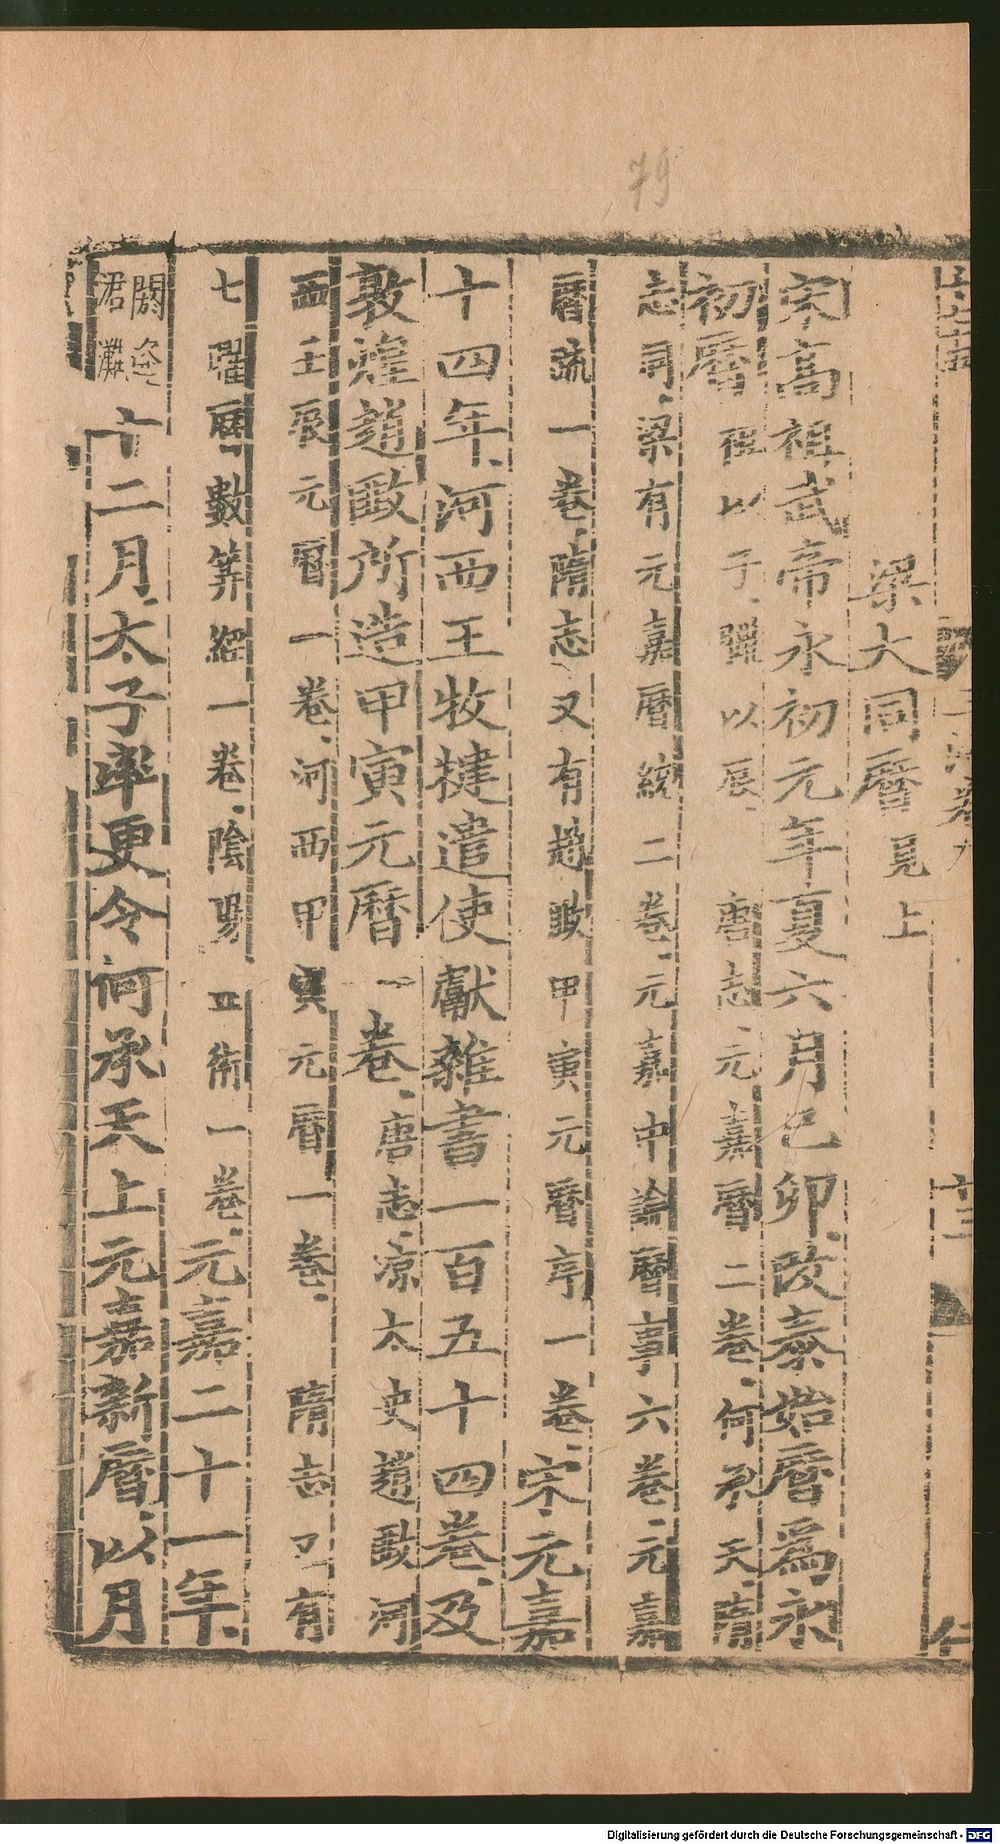 79
梁大同曆見上
宋高祖武帝永初元年夏六月己卯改泰始曆爲永
初曆祖以子臘以辰唐志元嘉曆二卷何承天隋
志同梁有元嘉曆統二卷元嘉中論曆事六卷元嘉
曆疏一卷隋志又有趙𢾺甲寅元曆序一卷宋元嘉
十四年河西王牧犍遣使獻雜書一百五十四卷及
敦煌趙𢾺所造甲寅元曆一卷唐志涼太史趙𢾺河
西壬辰元曆一卷河西甲寅元曆一卷隋志又有
七曜曆數筭經一卷陰陽曆術一卷元嘉二十一年
閼逢涒灘十二月太子率更令何承天上元嘉新曆以月
十三
仁
Digitalisierung gefördert durch die Deutsche Forschungsgemeinschaft - DFG